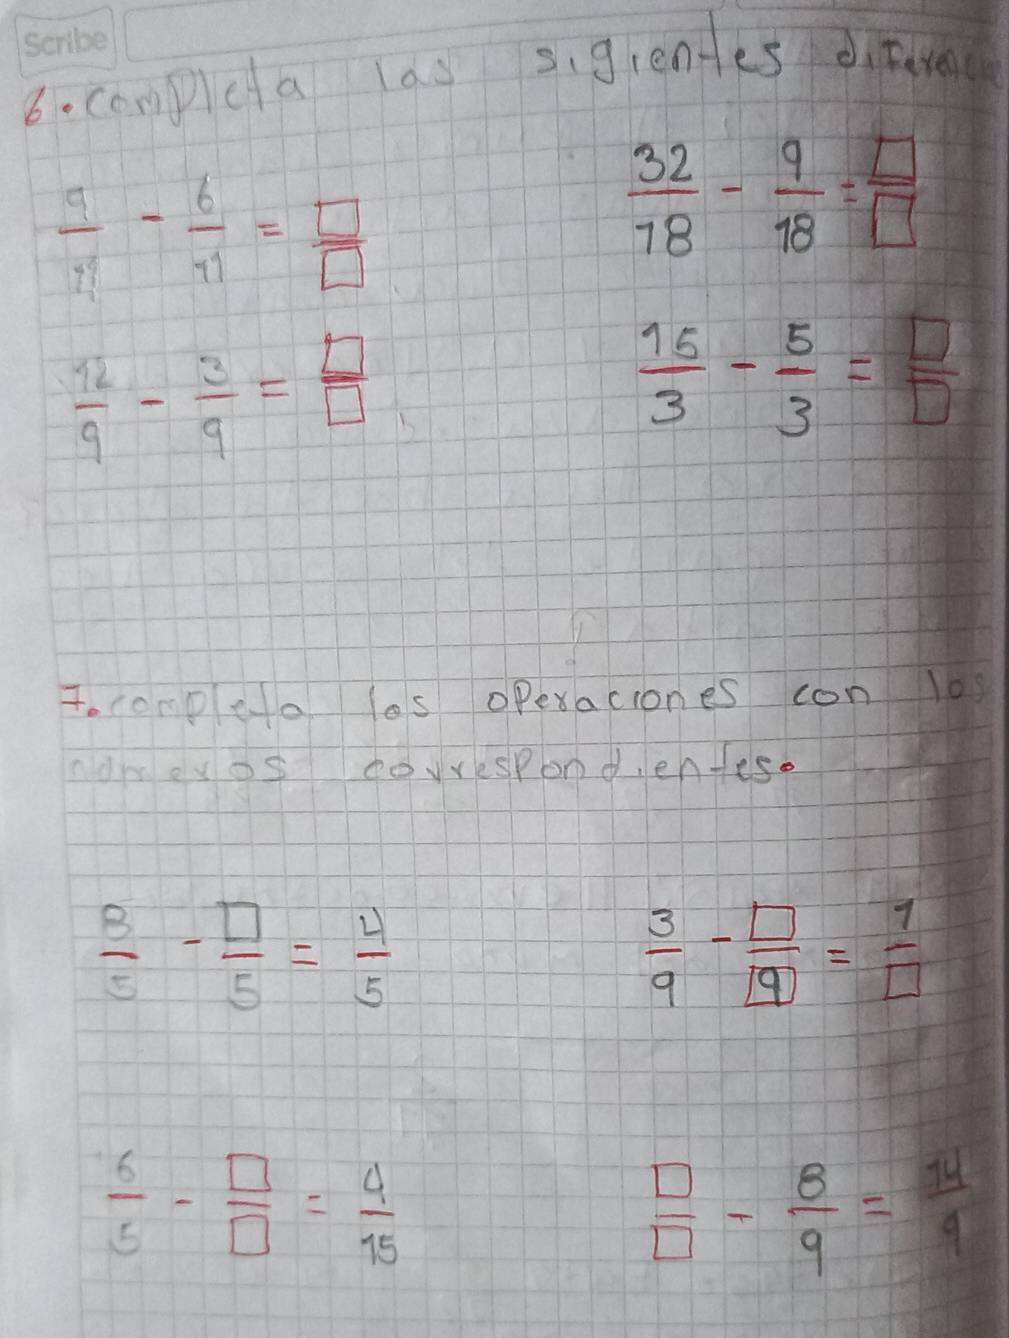 Scribe
6. completa las sigientes diferencias
9/11 - 6/11 = □/□
32/18 - 9/18 = □/□
12/9 - 3/9 = □/□
15/3 - 5/3 = □/□
7. completa las operaciones con los
números correspondientes.
8/5 - □/5 = 4/5
3/9 - □/9 = 1/□
6/5 - □/□ = 4/15
□/□ - 8/9 = 14/9